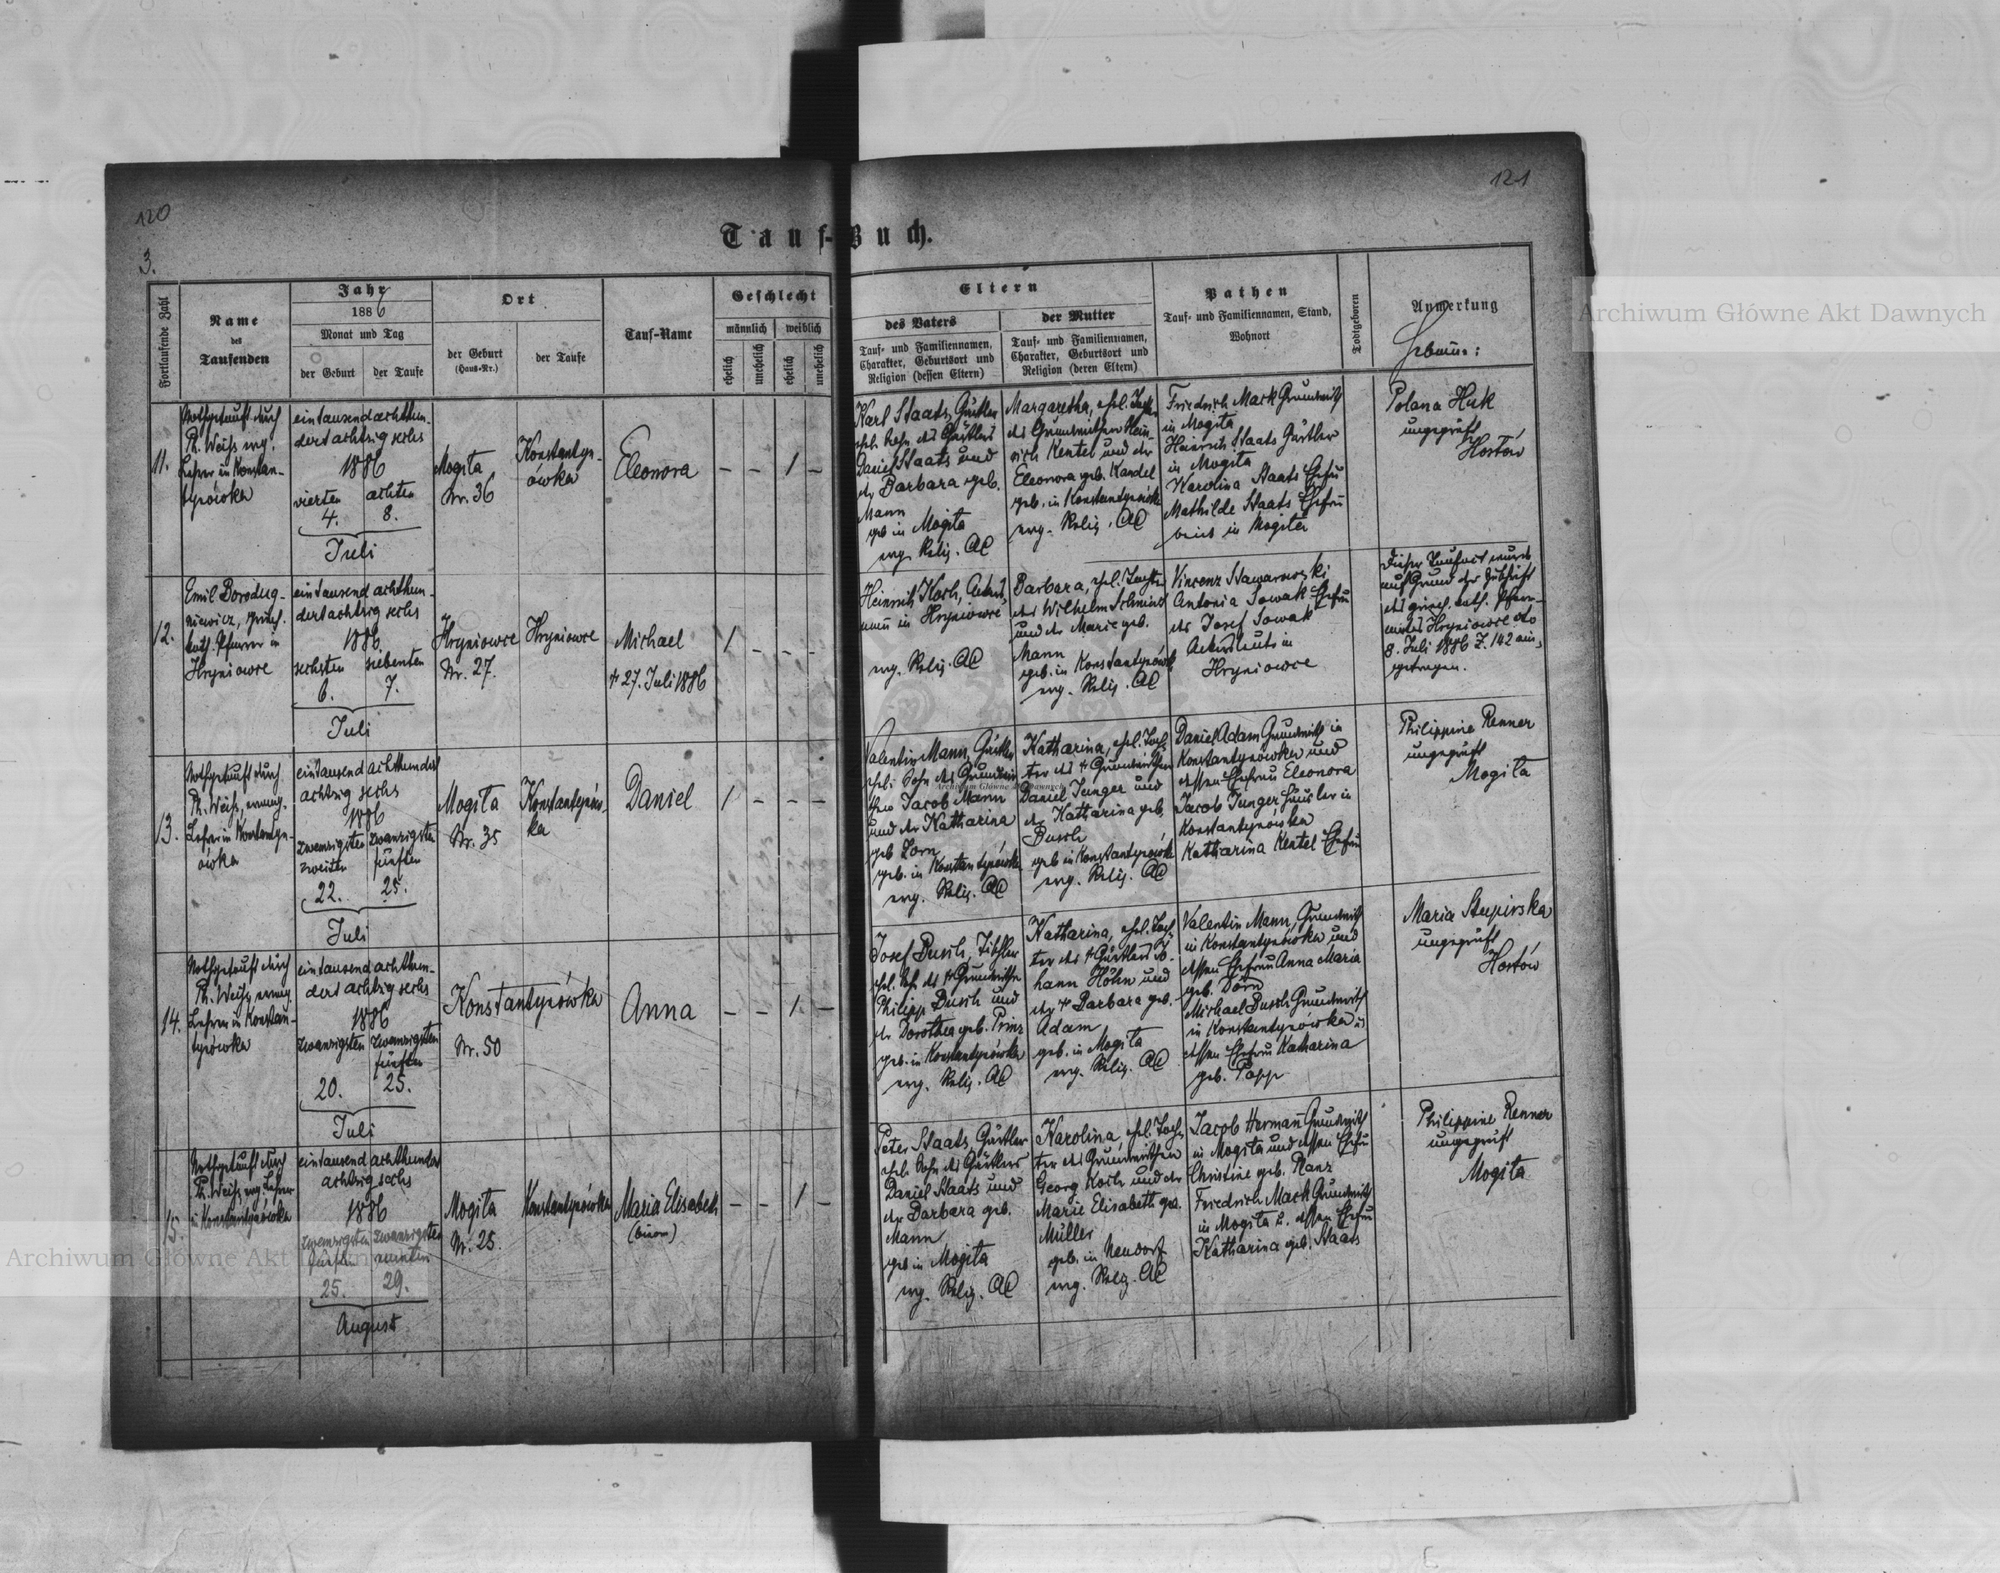 120
121
3.
Tauf-Buch.
Fortlaufende Zahl
Name
des
Taufenden
Jahr
1886
Monat und Tag
der Geburt
der Taufe
Ort
der Geburt
(Haus-Nr.)
der Taufe
Tauf-Name
Geschlecht
männlich
weiblich
ehelich
unehelich
ehelich
unehelich
Eltern
des Vaters
Tauf- und Familiennamen,
Charakter, Geburtsort und
Religion (dessen Eltern)
der Mutter
Tauf- und Familiennamen,
Charakter, Geburtsort und
Religion (deren Eltern)
Pathen
Tauf- und Familiennamen, Stand,
Wohnort
Todtgeboren
Anmerkung
Hebamme:
11.
Nothgetauft durch
Ph. Weiss evg.
Lehrer in Konstan-
tynówka
eintausendachthun-
dertachtzig sechs
1886
vierten
4.
achten
8.
Juli
Mogiła
Nr. 36
Konstantyn-
ówka
Eleonora
– – 1 –
Karl Staats, Gärtler
ehel. Sohn des Gärtlers
Daniel Staats und
der Barbara geb.
Mann
geb in Mogiła
evg. Relig. AC
Margaretha, ehel. Tocht.
des Grundwirthen Hein-
rich Kentel und der
Eleonora geb. Kandel
geb. in Konstantynówka
evg. Relig. AC
Friedrich Mack Grundwirth
in Mogiła
Heinrich Staats Gärtler
in Mogiła
Karolina Staats Ehefrau
Mathilde Staats Ehefrau
beide in Mogiła
Polana Huk
ungeprüft
Hostów
12.
Emil Borodug-
niewicz, griech.
kath. Pfarrer in
Hryniowce
eintausend achthun-
dertachtzig sechs
1886
sechsten
6.
siebenten
7.
Juli
Hryniowce
Nr. 27.
Hryniowce
Michael
† 27. Juli 1886
1 – – –
Heinrich Koch, Ackers-
mann in Hryniowce
evg. Relig. AC
Barbara, ehel. Tochter
des Wilhelm Schmidt
und der Marie geb.
Mann
geb. in Konstantynówk
evg. Relig. AC
Vincenz Stawarowski
Antonia Sowak Ehefrau
des Josef Sowak
Ackersleute in
Hryniowce
Dieser Taufact wurde
auf Grund der Zuschrift
des griech. kath. Pfarr-
amtes Hryniowce dto
8. Juli 1886 Z. 142 ein-
getragen.
13.
Nothgetauft durch
Ph. Weiss, evang.
Lehrer in Konstantyn-
ówka
eintausend achthundert
achtzig sechs
1886
zwanzigsten
zweiten
22.
zwanzigsten
fünften
25.
Juli
Mogiła
Nr. 35
Konstantynów-
ka
Daniel
1 – – –
Valentin Mann, Gärtler
ehel. Sohn des Grundwir-
then Jacob Mann
und der Katharina
geb Zorn
geb. in Konstantynówka
evg. Relig. AC
Katharina, ehel. Toch-
ter des † Grundwirthen
Daniel Junger und
der Katharina geb.
Busch
geb in Konstantynówk
evg. Relig. AC
Daniel Adam Grundwirth in
Konstantynówka und
dessen Ehefrau Eleonora
Jacob Junger Häusler in
Konstantynówka
Katharina Kentel Ehefrau
Philippine Renner
ungeprüft
Mogiła
14.
Nothgetauft durch
Ph. Weiss, evang.
Lehrer in Konstan-
tynówka
eintausend achthun-
dert achtzig sechs
1886
zwanzigsten
20.
zwanzigsten
fünften
25.
Juli
Konstantynówka
Nr. 50
Anna
– – 1. –
Josef Busch, Tischler
ehel. Sohn des † Grundwirthen
Philipp Busch und
der Dorothea geb. Prinz
geb. in Konstantynówka
evg. Relig. AC
Katharina, ehel. Toch-
ter des † Gärtlers Jo-
hann Höhn und
der † Barbara geb.
Adam
geb. in Mogiła
evg. Relig. AC
Valentin Mann, Grundwirth
in Konstantynówka und
dessen Ehefrau Anna Maria
geb. Dorn
Michael Busch Grundwirth
in Konstantynówka u
dessen Ehefrau Katharina
geb. Popp
Maria Stupirska
ungeprüft
Hostów
15.
Nothgetauft durch
Ph. Weiss evg Lehrer
in Konstantynówka
eintausend achthundert
achtzig sechs
1886
zwanzigsten
fünften
25.
zwanzigsten
neunten
29.
August
Mogiła
Nr. 25.
Konstantynówka
Maria Elisabeth
– – 1 –
Peter Staats, Gärtler
ehel. Sohn des Gärtlers
Daniel Staats und
der Barbara geb.
Mann
geb in Mogiła
evg. Relig. AC
Karolina, ehel. Toch-
ter des Grundwirthen
Georg Koch und der
Marie Elisabeth geb.
Müller
geb. in Neudorf
evg. Relig. AC
Jacob Hermann Grundwirth
in Mogiła und dessen Ehefrau
Christine geb. Manz
Friedrich Mack Grundwirth
in Mogiła u. dessen Ehefrau
Katharina geb. Staats
Philippine Renner
ungeprüft
Mogiła
Archiwum Główne Akt Dawnych
Archiwum Główne Akt Dawnych
Archiwum Główne Akt Dawnych